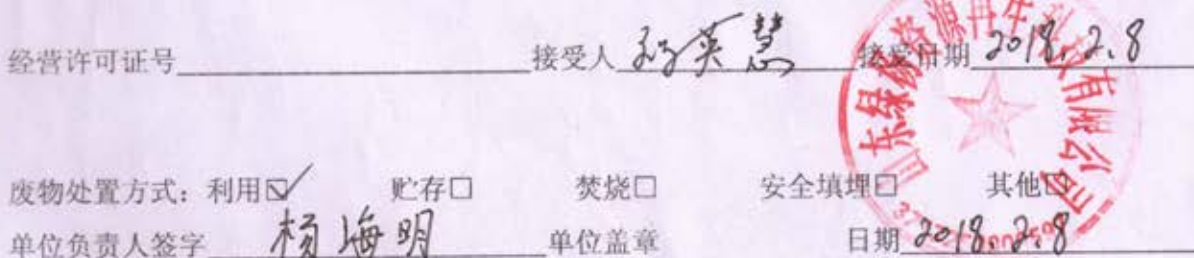 经营许可证号 接受人 孙英慧 接受日期 2018.2.8
废物处置方式：利用☑ 贮存□ 焚烧□ 安全填埋□ 其他□
单位负责人签字 杨海明 单位盖章 日期 2018.2.8
山东绿 资源再生科技有限公司